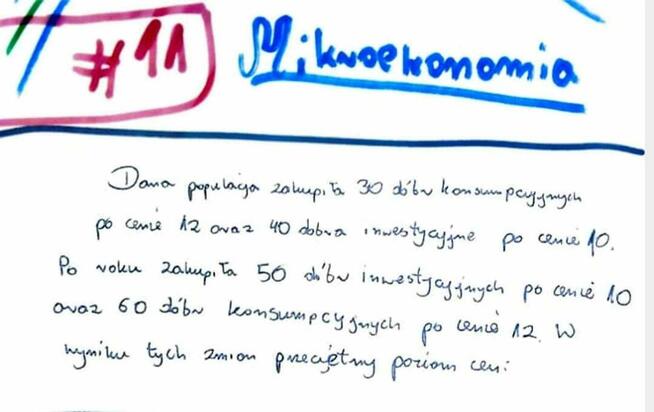 #11 Mikroekonomia
Dana populacja zakupiła 30 dóbr konsumpcyjnych
po cenie 12 oraz 40 dobra inwestycyjne po cenie 10.
Po roku zakupiła 50 dóbr inwestycyjnych po cenie 10
oraz 60 dóbr konsumpcyjnych po cenie 12. W
wyniku tych zmian przeciętny poziom cen: